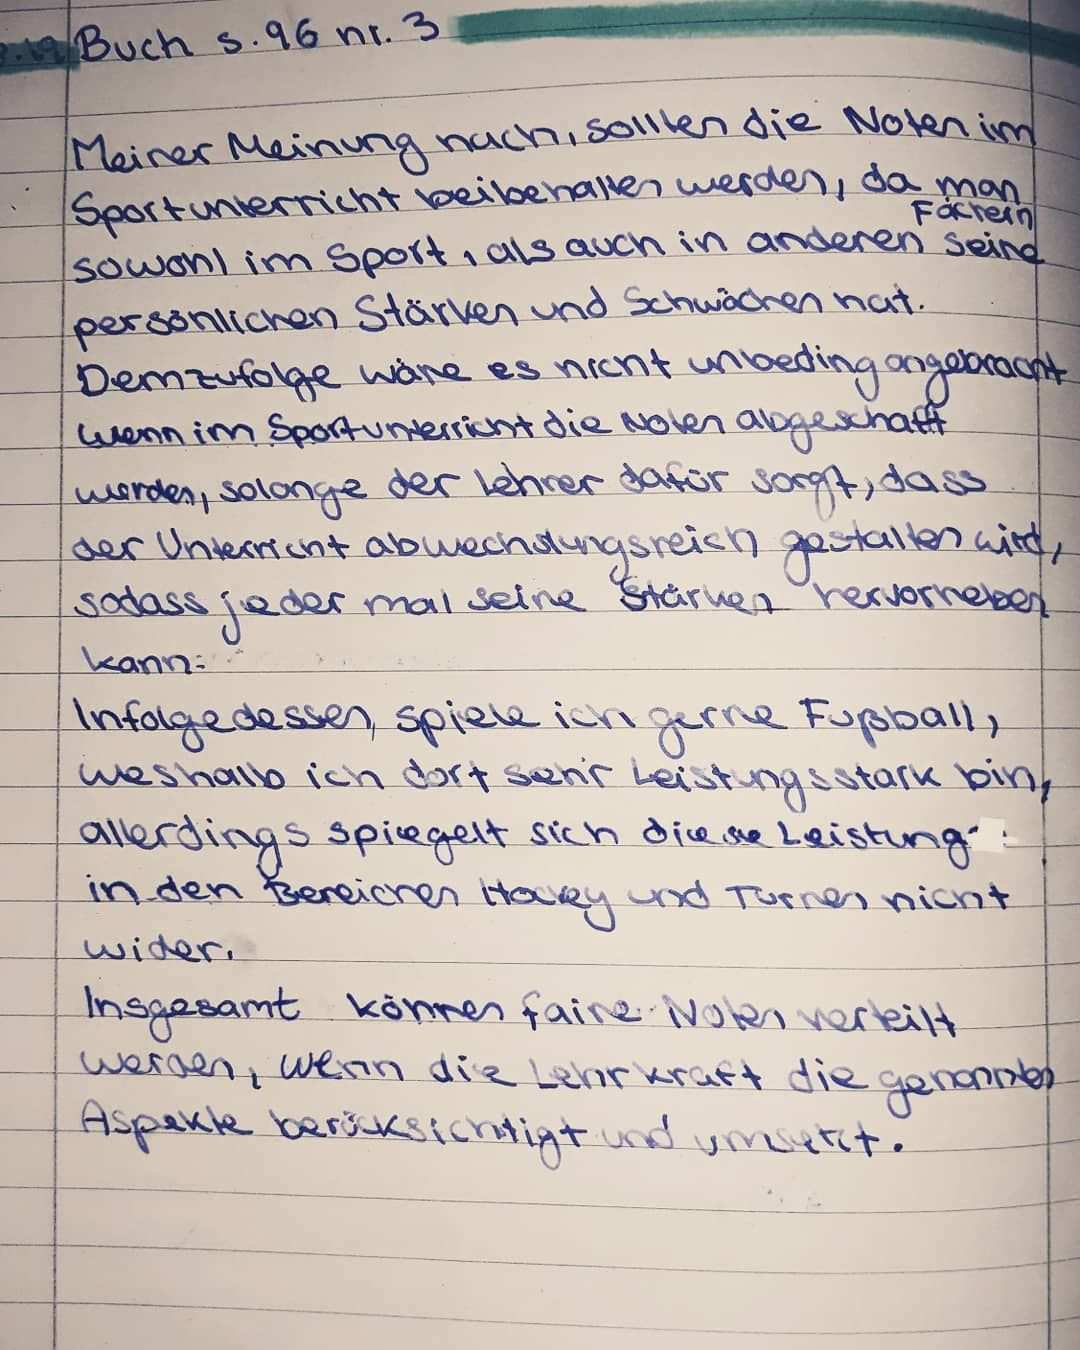 .19 Buch s.96 nr. 3
Meiner Meinung nach, sollten die Noten im
Sportunterricht beibehalten werden, da man
Fächern
sowohl im Sport, als auch in anderen seine
persönlichen Stärken und Schwächen hat.
Demzufolge wäre es nicht unbeding angebracht
wenn im Sportunterricht die Noten abgeschafft
werden, solange der Lehrer dafür sorgt, dass
der Unterricht abwechslungsreich gestalten wird,
sodass jeder mal seine Stärken hervorheben
kann.
Infolgedessen, spiele ich gerne Fußball,
weshalb ich dort sehr Leistungsstark bin,
allerdings spiegelt sich diese Leistung
in den Bereichen Hockey und Turnen nicht
wider.
Insgesamt können faire Noten verteilt
werden, wenn die Lehrkraft die genannten
Aspekte berücksichtigt und umsetzt.